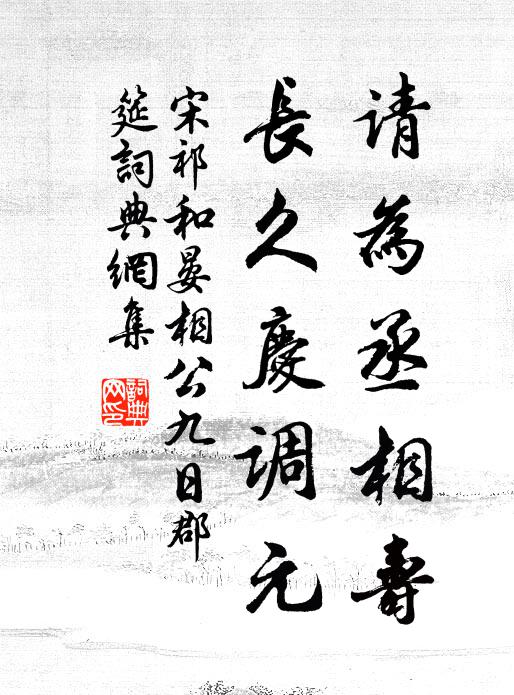 请為丞相壽
長久慶调元
宋祁和晏相公九日郡
筵詞典網集
詞典网印